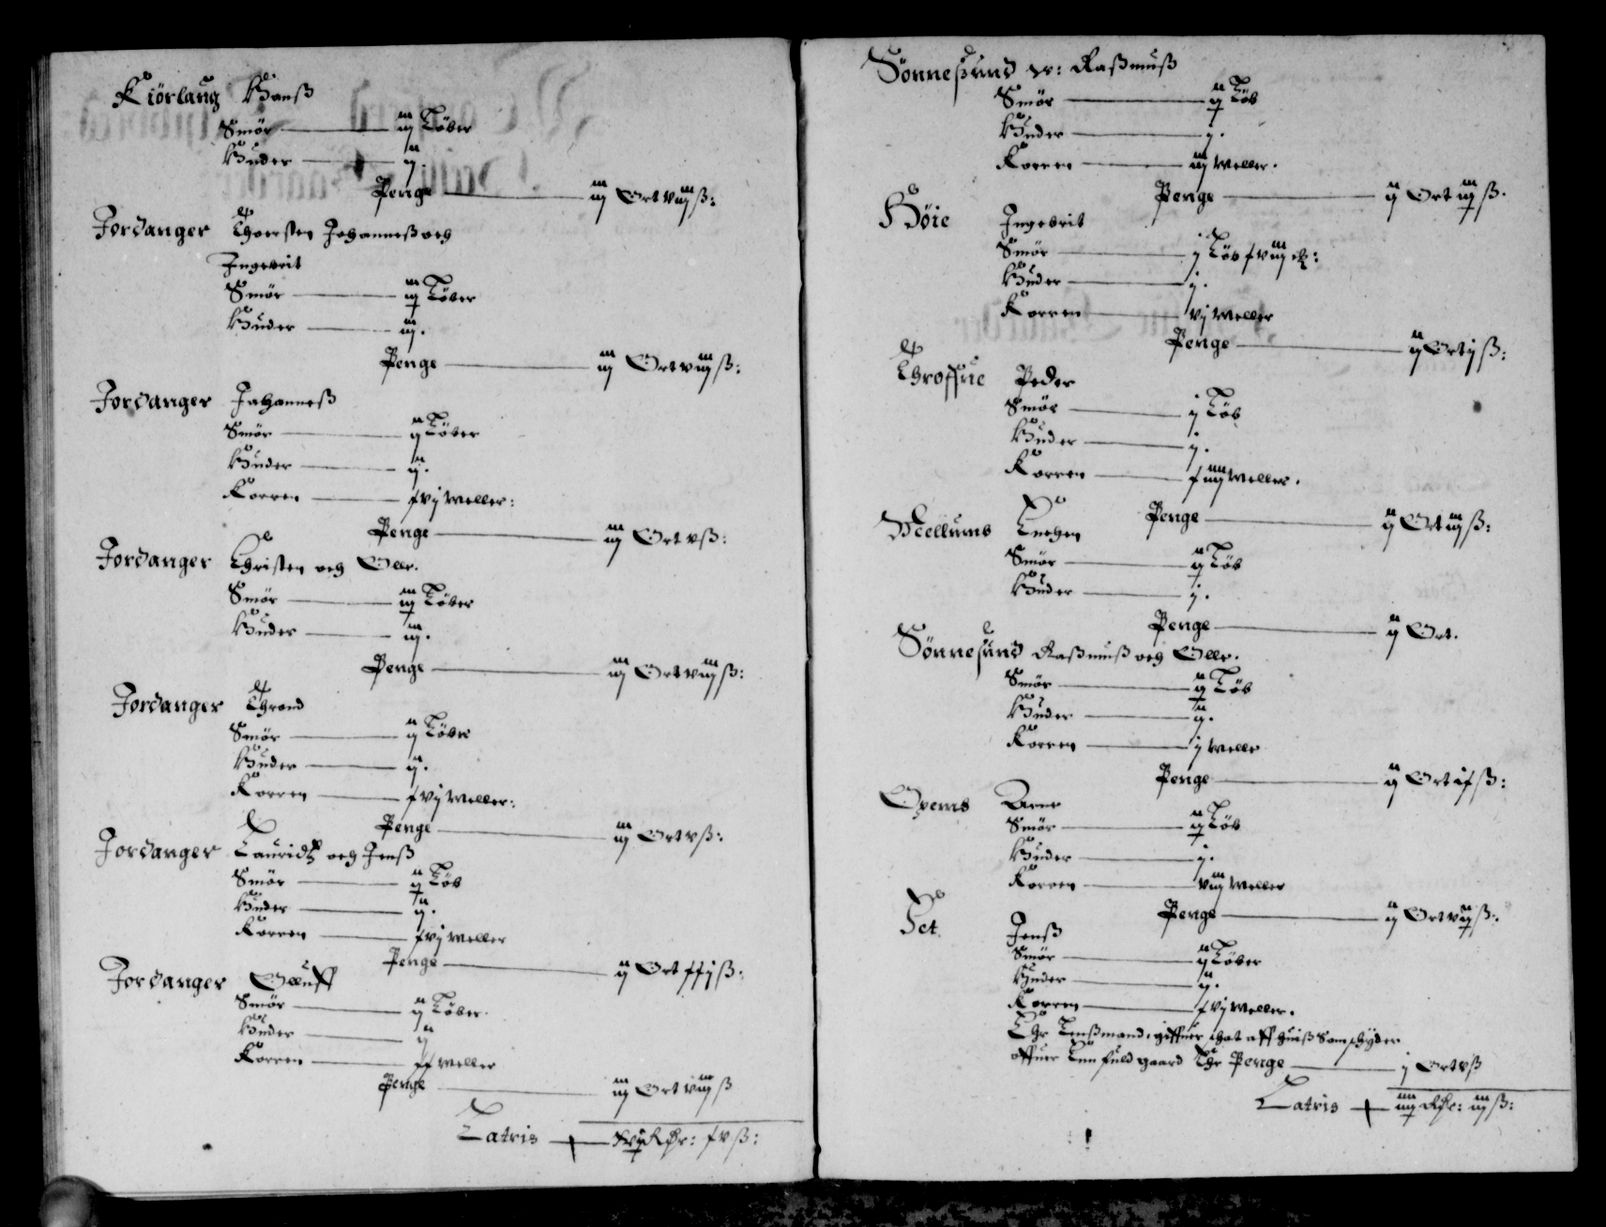 Kiörlaug Hanß
Smör — iij Löber
Huder — ij.
Penge — iij Ort viij ß:
Jordanger Thoersten Johanneß och
Ingebrit
Smör — iij Löber
Huder — iij.
Penge — iij Ort viij ß:
Jordanger Johanneß
Smör — ij Löber
Huder — ij.
Korren — xvj Meller:
Penge — iij Ort v ß:
Jordanger Christen och Oller.
Smör — iij Löber
Huder — iij.
Penge — iij Ort viij ß:
Jordanger Thrond
Smör — ij Löber
Huder — ij.
Korren — xvj Meller:
Penge — iij Ort v ß:
Jordanger Lauridtz och Jenß
Smör — ij Löb
Huder — ij.
Korren — xvj Meller
Penge — ij Ort xxj ß:
Jordanger Olluff
Smör — ij Löber.
Huder — ij
Korren — xx Meller
Penge — iij Ort viij ß
Latris — Rdr: xv ß:
Sönnesund Raßmuß
Smör — ij Löb
Huder — j.
Korren — iij Meller.
Penge — ij Ort iij ß.
Höie Ingebrit
Smör — j Löb xviij
Huder — j.
Korren — vj Meller
Penge — ij Ort ij ß:
Peder
Smör — j Löb
Huder — j.
Korren — xiiij Meller.
Penge — ij Ort iij ß:
Mellums
Smör — ij Löb
Huder — j.
Penge — ij Ort.
Sönnesund Raßmuß och Oller.
Smör — ij Löb
Huder — ij.
Korren — ij Meller
Penge — ij Ort ix ß:
Opems Arne
Smör — ij Löb
Huder — j.
Korren — viij Meller
Penge — ij Ort vij ß:
Set Jenß
Smör — ij Löber
Huder — ij.
Korren — xvj Meller.
Lenßmand, giffuer
offuer fuld gaard Penge — j Ort v ß
Latris — iiij Rdr: iij ß: